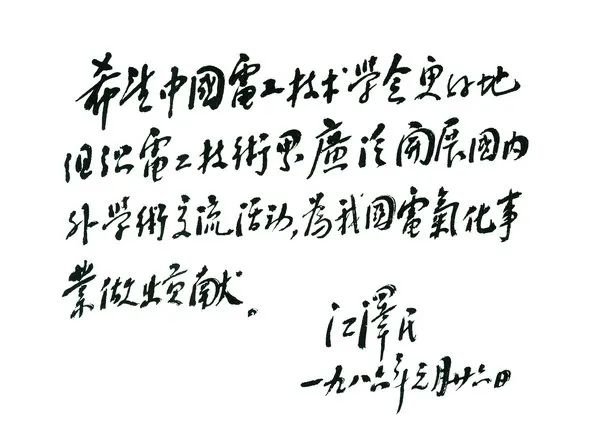 希望中國電工技术學会更好地
组织電工技術界廣泛開展國内
外學術交流活动,為我國電氣化事
業做出贡献。
江澤民
一九八六年元月廿六日